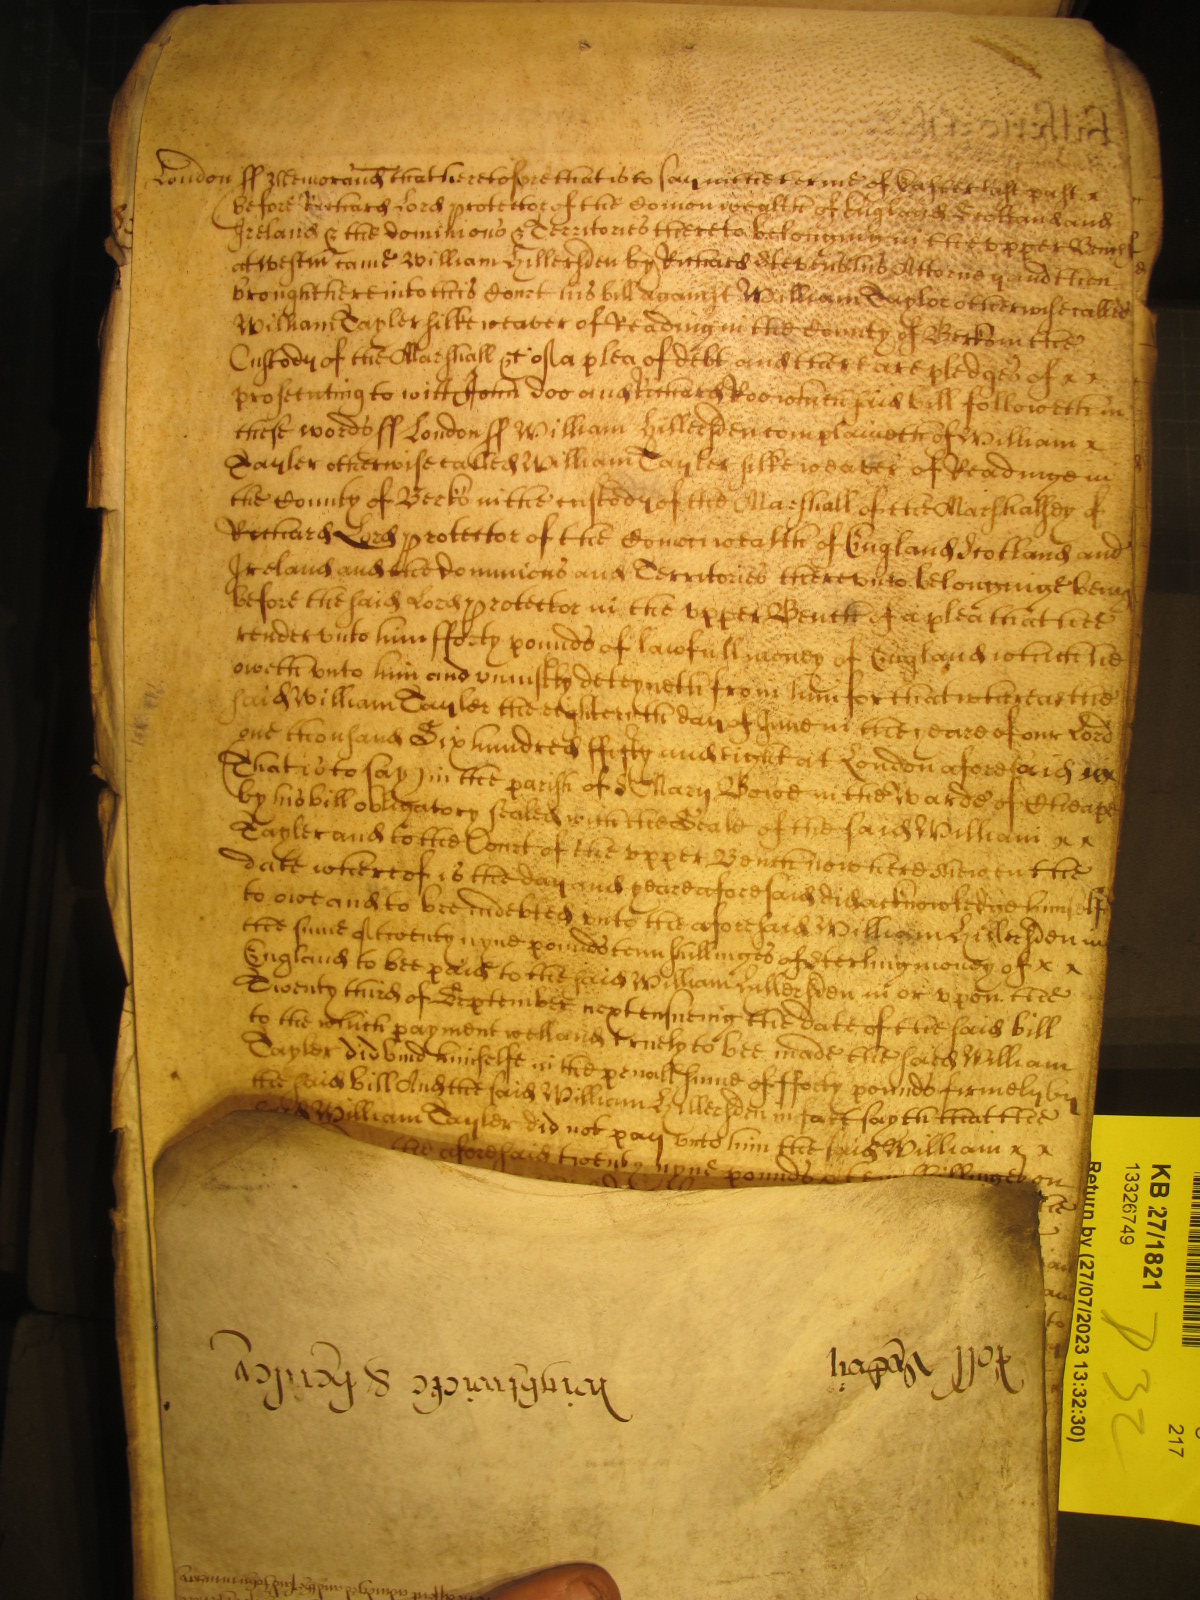 London ss Memorand that heretofore that is to say in the terme of Easter last past x
before Richard Lord Protector of the Comon wealth of England Scotland and
Ireland & the dominions & Territories thereto belonging in the upper Bench
at Westm came William Hillersden by Richard Stevens his Attorney and then
brought here into this Court his bill against William Tayler otherwise called
William Tayler silkeweaver of Reading in the County of Berks in the
Custody of the Marshall &c of a plea of debt and there are pledges of x x
prosecuting to witt John Doo and Richard Roo which said bill followeth in
these words ss London ss William Hillersden complaineth of William x
Tayler otherwise called William Tayler silkeweaver of Readinge in
the County of Berks in the custody of the Marshall of the Marshalsey of
Richard Lord Protector of the Comonwealth of England Scotland and
Ireland and the dominions and Territories thereunto belonginge being
before the said Lord Protector in the upper Bench of a plea that hee
render unto him fforty pounds of lawfull money of England which he
oweth unto him and uniustly deteyneth from him for that whereas the
said William Tayler the eighteenth day of June in the yeare of our Lord
one thousand Six hundred ffifty and eight at London aforesaid
That is to say in the parish of S Mary Bowe in the Warde of Cheape
by his bill obligatory sealed with the Seale of the said William x x
Tayler and to the Court of the upper Bench now here shewen the
date whereof is the day and yeare aforesaid did acknowledge himself
to owe and to bee indebted unto the aforesaid William Hillersden in
the sume of twenty nyne pounds tenn shillinges of sterling money of x x
England to bee paid to the said William Hillersden in or upon the
Twenty third of September next ensueing the date of the said bill
to the which payment well and truely to bee made the said William
Tayler did bind himselfe in the penall sume of fforty pounds firmely by
the said bill And the said William Hillersden in fact sayth that the
said William Tayler did not pay unto him the said William x x
the aforesaid twenty nyne pounds tenn shillinges on
KB 27/1821
13326749
Return by (27/07/2023 13:32:30)
217
P 32